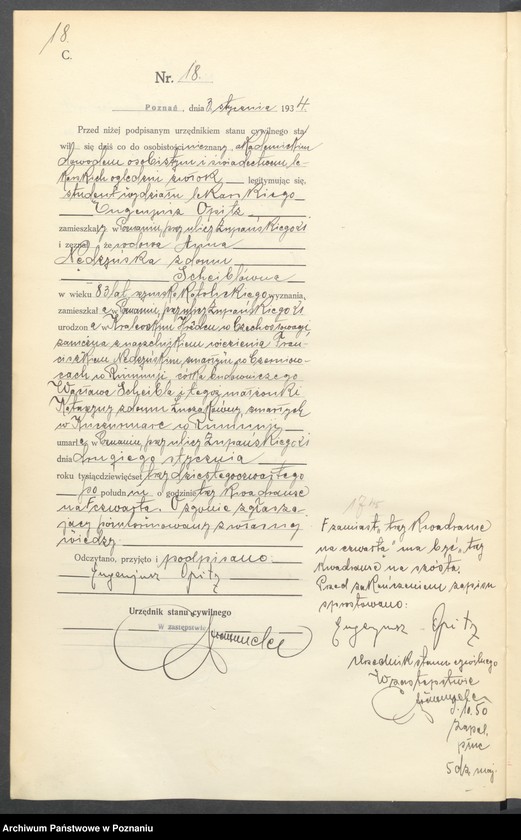 18.
C.
Nr. 18.
Poznań, dnia 3 stycznia 1934.
Przed niżej podpisanym urzędnikiem stanu cywilnego sta
wił się dziś co do osobistości nieznany, akademickim
dowodem osobistym i świadectwem le-
karskich oględzin zwłok legitymując się,
student wydziału lekarskiego
Eugeniusz Opitz
zamieszkały w Poznaniu, przy ulicy Żupańskiego
i zeznał, że wdowa Anna
Nedzyńska z domu
Scheiblówna
w wieku 83 lat, wyznania, 
zamieszkała w Poznaniu, przy ulicy Żupańskiego
urodzona w w Czechosłowacji,
zamężna z naczelnikiem więzienia Fran-
ciszkiem zmarłym w Czerniow-
cach w Rumunji, córka budowniczego
Wacława Scheibla i tegoż małżonki
Katarzyny z domu zmarłych
w w Rumunji
umarła w Poznaniu, przy ulicy Żupańskiego
dnia drugiego stycznia
roku tysiącdziewięćset trzydziestegoczwartego
po południu o godzinie trzy kwadranse
na czwartą. O zgonie zgłasza-
jący poinformowany z własnej
wiedzy.
Odczytano, przyjęto i podpisano:
Eugenjusz Opitz
Urzędnik stanu cywilnego
W zastępstwie
zamiast „trzy kwadranse
na czwartą" ma być „trzy
kwadranse na szóstą.
Przed zakończeniem zapisu
sprostowano:
Eugenjusz Opitz
Urzędnik stanu cywilnego
W zastępstwie
Archiwum Państwowe w Poznaniu